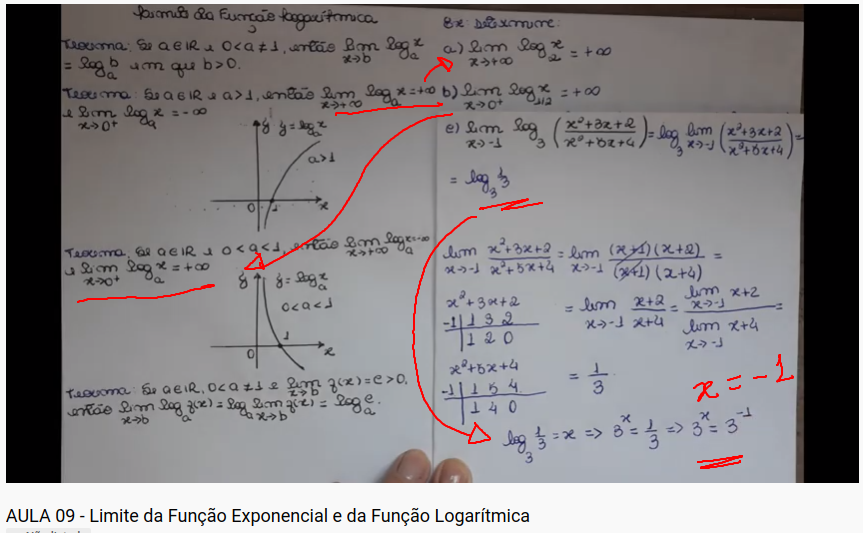 fórmula da Função logarítmica
Teorema: Se a∈IR e 0<a≠1, então lim x→b log_a x
= log_a b em que b>0.
Teorema: Se a∈IR e a>1, então lim x→+∞ log_a x=+∞
e lim x→0⁺ log_a x = -∞
y y=log_a x
a>1
0 1 x
Teorema: Se a∈IR e 0<a<1, então lim x→+∞ log_a x=-∞
e lim x→0⁺ log_a x = +∞
y y=log_a x
0<a<1
1
0 x
Teorema: Se a∈IR, 0<a≠1 e lim x→b f(x)=c>0,
então lim x→b log_a f(x) = log_a lim x→b f(x) = log_a c.
Ex: Determine:
a) lim x→+∞ log_2 x = +∞
b) lim x→0⁺ log_1/2 x = +∞
c) lim x→-1 log_3 (x²+3x+2/x²+5x+4) = log_3 lim x→-1 (x²+3x+2/x²+5x+4) =
= log_3 1/3
lim x→-1 x²+3x+2/x²+5x+4 = lim x→-1 (x+1)(x+2)/(x+1)(x+4) =
x²+3x+2
-1 1 3 2
1 2 0
= lim x→-1 x+2/x+4 = lim x→-1 x+2/lim x→-1 x+4 =
x²+5x+4
-1 1 5 4
1 4 0
= 1/3
x = -1
log_3 1/3 = x => 3^x = 1/3 => 3^x = 3^-1
AULA 09 - Limite da Função Exponencial e da Função Logarítmica